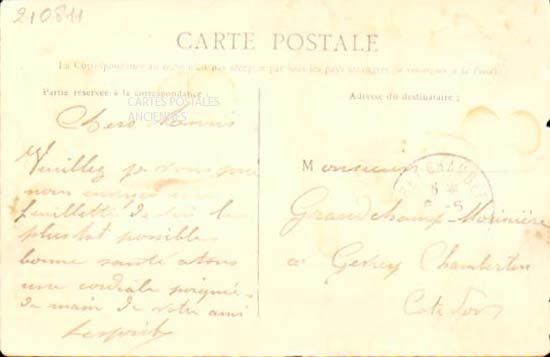 210811
CARTE POSTALE
La Correspondance au recto n'est pas acceptée par tous les pays étrangers (se renseigner à la Poste)
Partie réservée à la correspondance :
Adresse du destinataire :
CARTES POSTALES
ANCIENNES
Chers
Veuillez je vous prie
nous envoyer une
feuillette de vin le
plus tot possible
bonne santé a tous
une cordiale poignée
de main de votre ami
Monsieur
Grandchamp-Morinière
a Gevrey Chambertin
Cote d'or